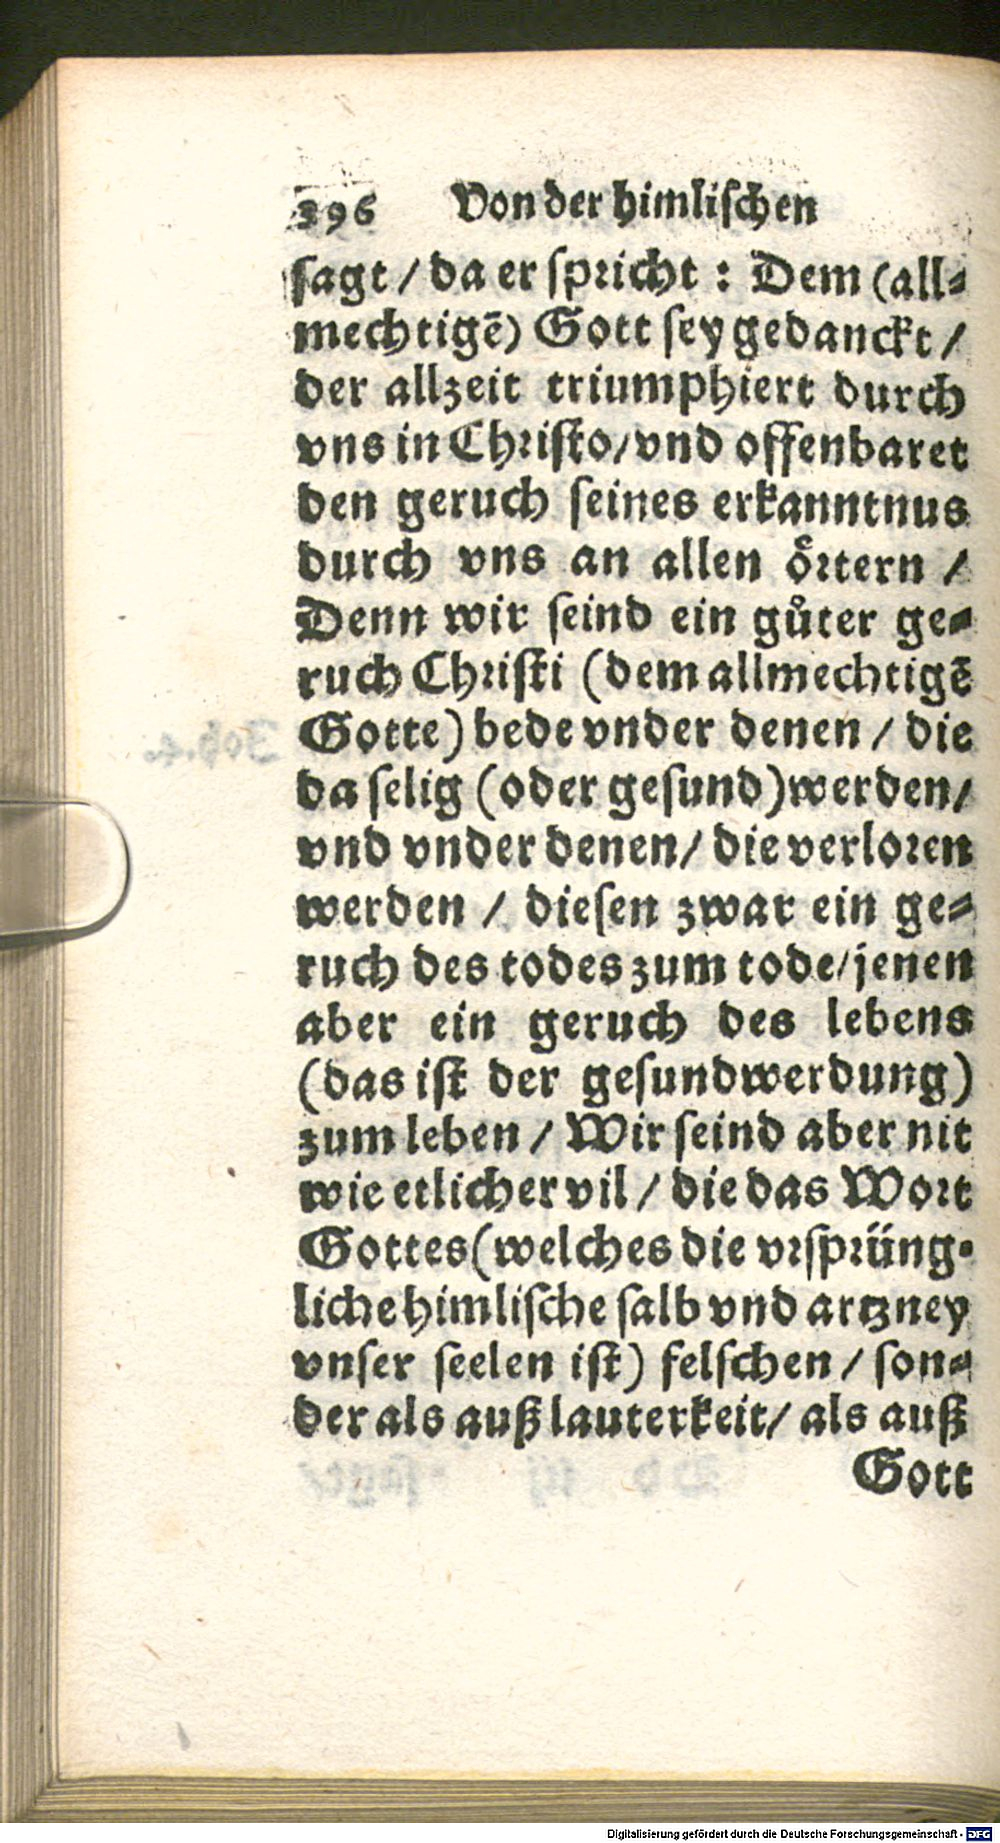 396 Von der himlischen
sagt / da er spricht : Dem (all⸗
mechtigẽ) Gott sey gedanckt /
der allzeit triumphiert durch
vns in Christo / vnd offenbaret
den geruch seines erkanntnus
durch vns an allen oͤrtern /
Denn wir seind ein guͦter ge⸗
ruch Christi (dem allmechtigẽ
Gotte) bede vnder denen / die
da selig (oder gesund) werden /
vnd vnder denen / die verloren
werden / diesen zwar ein ge⸗
ruch des todes zum tode / jenen
aber ein geruch des lebens
(das ist der gesundwerdung)
zum leben / Wir seind aber nit
wie etlicher vil / die das Wort
Gottes (welches die vrsprüng⸗
liche himlische salb vnd artzney
vnser seelen ist) felschen / son⸗
der als auß lauterkeit / als auß
Gott
Digitalisierung gefördert durch die Deutsche Forschungsgemeinschaft - DFG